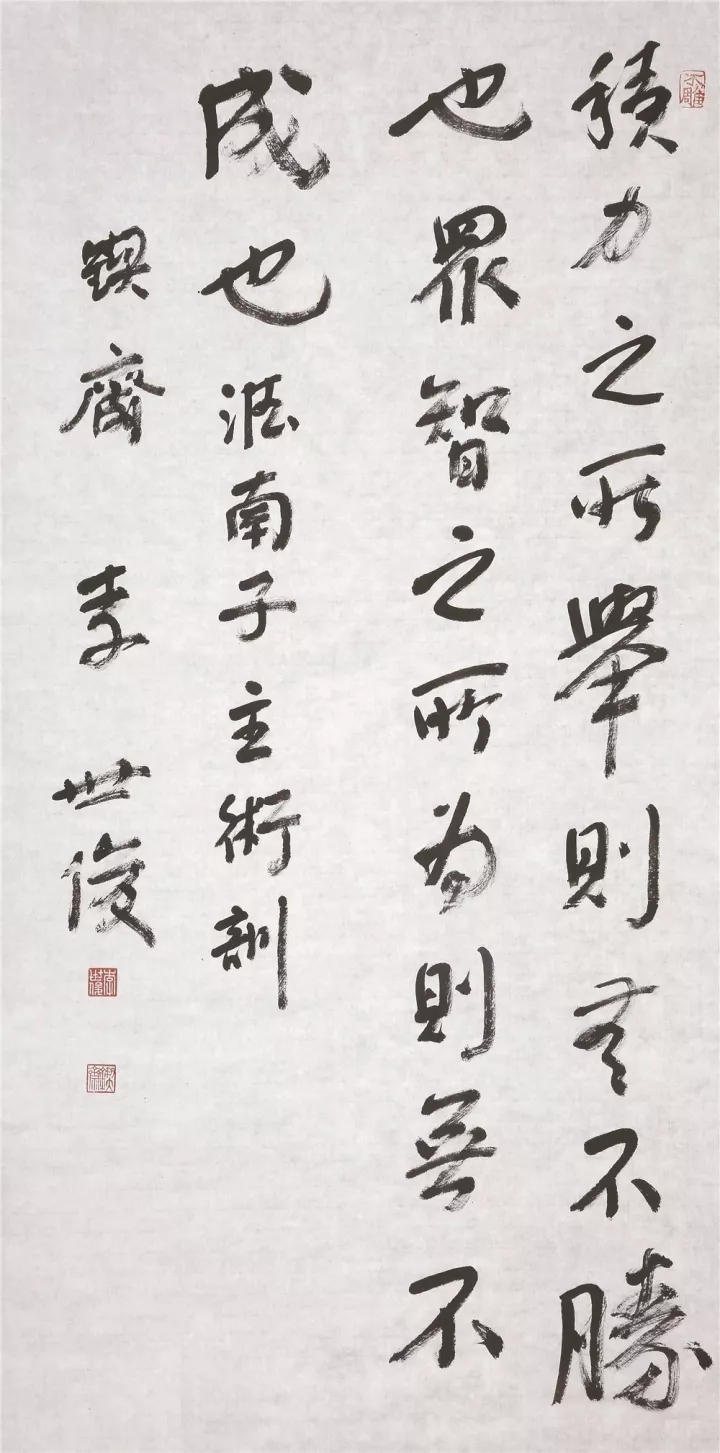 積力之所舉則無不勝
也眾智之所為則無不
成也淮南子主術訓
鍥齋李世俊
李世俊
鍥齋